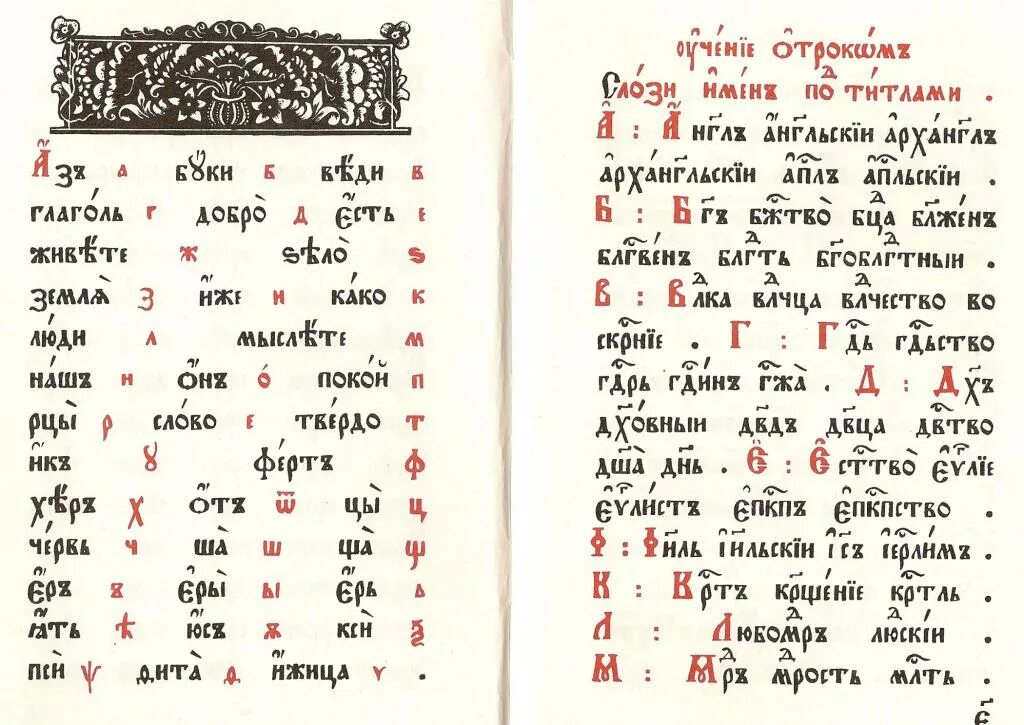 А҆́зъ а бꙋ́ки б вѣ́ди в
глаго́ль г добро̀ д є҆́сть е
живѣ́те ж ѕѣло̀ ѕ
землѧ̀ З и҆́же и ка́ко к
лю́ди л мыслѣ́те м
на́шъ н о҆́нъ о́ поко́й п
рцы̀ р сло́во с тве́рдо т
и҆́къ ꙋ фе́ртъ ф
хѣ́ръ х ѿ ѿ цы̀ ц
че́рвь ч ша̀ ш ща̀ щ
є҆́ръ ъ є҆ры̀ ы є҆́рь ь
ꙗ҆́ть ѣ ю҆́съ ѧ ксѝ ѯ
псѝ ѱ ѳита̀ ѳ и҆́жица ѵ .
оу҆че́нїе ѻ҆трокѡ́мъ
Сло́зи и҆ме́нъ поⷣ ти́тлами .
А҆́ : А҆́нг҃лъ а҆́нг҃льскїи а҆рха́нг҃лъ
а҆рха́нг҃льскїи а҆пⷭ҇лъ а҆пⷭ҇льскїи .
Б : Бг҃ъ бжⷭ҇тво̀ бцⷣа бл҃же́нъ
блг҃ве́нъ блгⷣть бг҃облгⷣтныи .
В : Влⷣка влⷣчца влⷣчество во
скрⷭ҇нїе . Г : Гдⷭ҇ь гдⷭ҇ьство
гдⷭ҇рь гдⷭ҇и́нъ гжⷭ҇а̀ . Д : Дх҃ъ
дх҃о́вныи дв҃дъ дв҃ца двⷭ҇тво
дш҃а̀ дн҃ь . Є҆ : Є҆стⷭ҇тво̀ є҆ѵⷢ҇лїе
є҆ѵⷢ҇ли́стъ є҆пⷭ҇кпъ є҆пⷭ҇кпство .
І҆ : І҆и҃ль і҆и҃льскїи і҆с҃ъ і҆ерⷭ҇ли́мъ .
К : Крⷭ҇тъ крⷭ҇ще́нїе крⷭ҇тль .
Л : Любомⷣръ люⷣскїи .
М : Мⷣръ мⷣрость млⷭ҇ть .
є҃